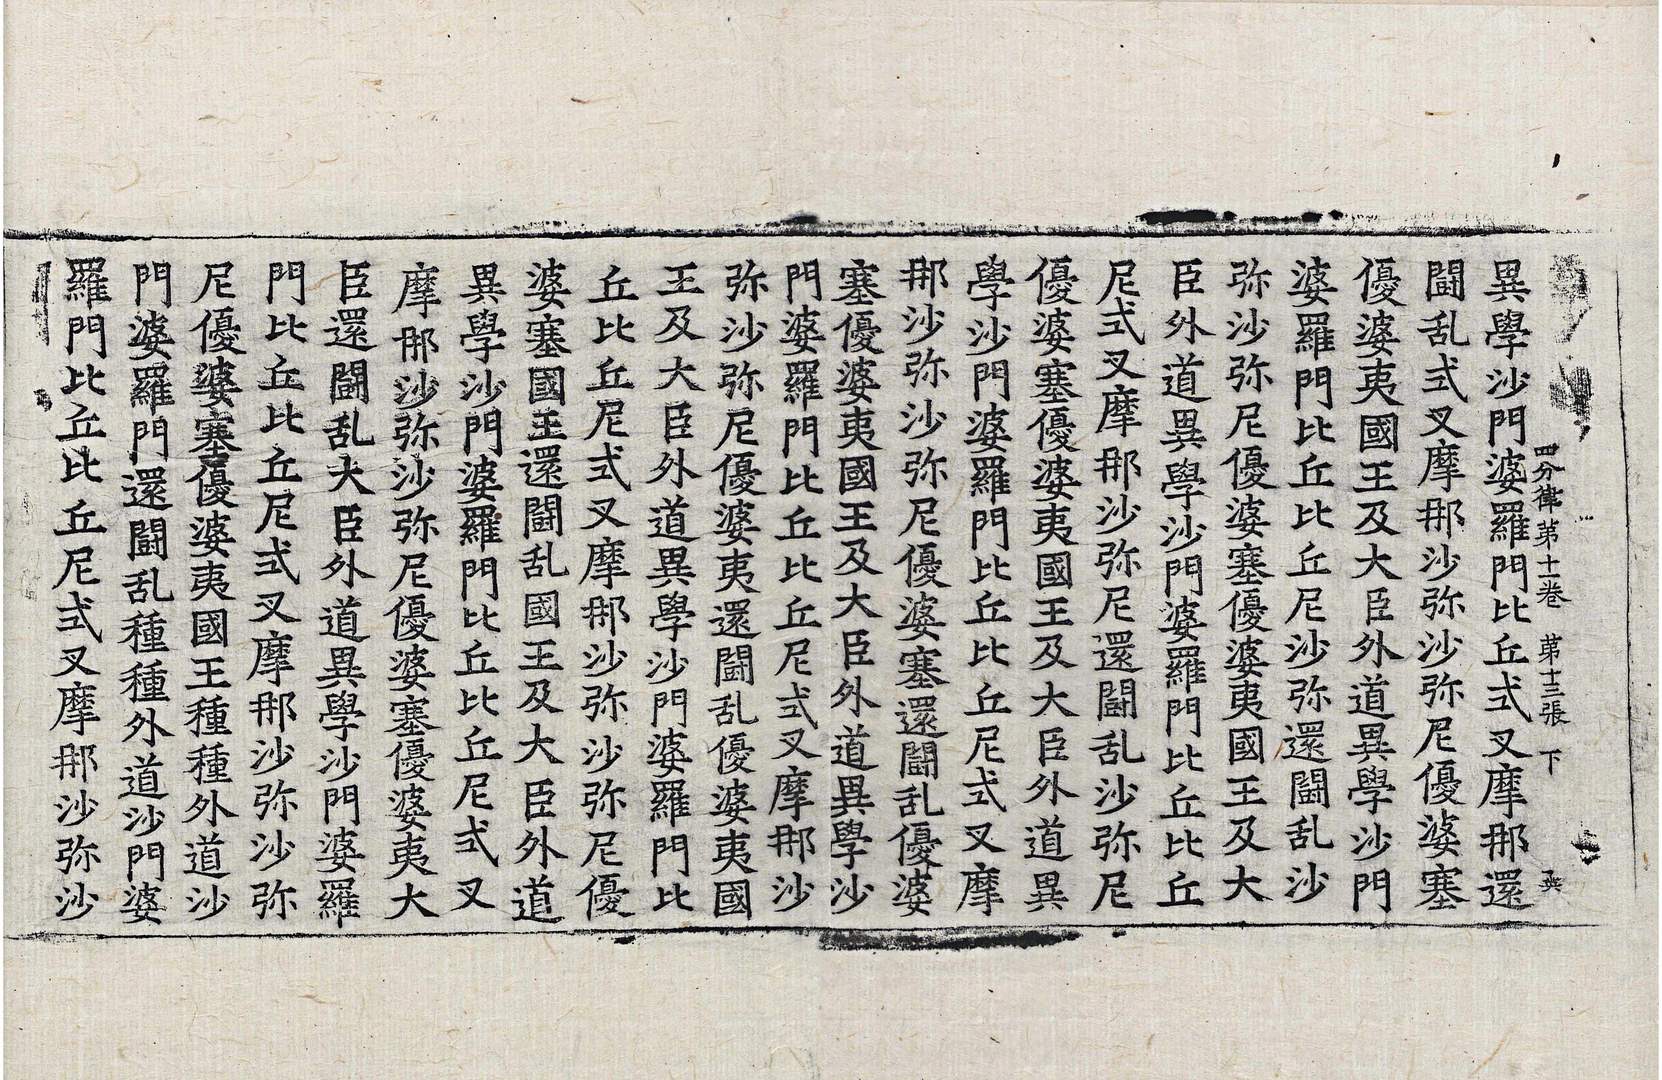 四分律第十一卷 第十三張 下 典
異學沙門婆羅門比丘式叉摩那還
闘乱式叉摩那沙弥沙弥尼優婆塞
優婆夷國王及大臣外道異學沙門
婆羅門比丘比丘尼沙弥還闘乱沙
弥沙弥尼優婆塞優婆夷國王及大
臣外道異學沙門婆羅門比丘比丘
尼式叉摩那沙弥尼還闘乱沙弥尼
優婆塞優婆夷國王及大臣外道異
學沙門婆羅門比丘比丘尼式叉摩
那沙弥沙弥尼優婆塞還闘乱優婆
塞優婆夷國王及大臣外道異學沙
門婆羅門比丘比丘尼式叉摩那沙
弥沙弥尼優婆夷還闘乱優婆夷國
王及大臣外道異學沙門婆羅門比
丘比丘尼式叉摩那沙弥沙弥尼優
婆塞國王還闘乱國王及大臣外道
異學沙門婆羅門比丘比丘尼式叉
摩那沙弥沙弥尼優婆塞優婆夷大
臣還闘乱大臣外道異學沙門婆羅
門比丘比丘尼式叉摩那沙弥沙弥
尼優婆塞優婆夷國王種種外道沙
門婆羅門還闘乱種種外道沙門婆
羅門比丘比丘尼式叉摩那沙弥沙